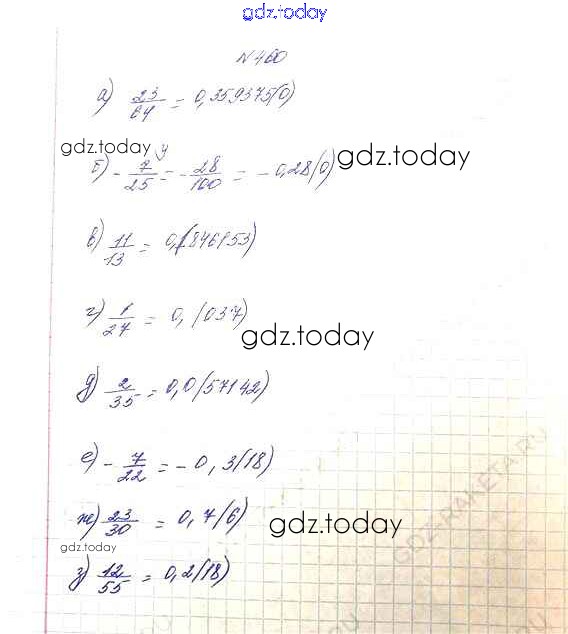 gdz.today
N 460
а) 23/64 = 0,359375(0)
gdz.today
б) - 7/25 ⁴ = - 28/100 = - 0,28(0) gdz.today
в) 11/13 = 0,(846153)
г) 1/27 = 0,(037)
gdz.today
д) 2/35 = 0,0(57142)
е) - 7/22 = - 0,3(18)
ж) 23/30 = 0,7(6) gdz.today
gdz.today
з) 12/55 = 0,2(18)
GDZ-RAKETA.RU